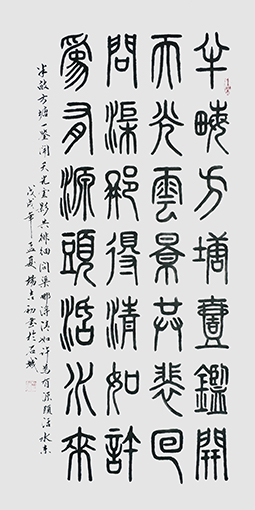 半畝方塘壹鑑開
天光雲景共裴回
問渠那得清如許
爲有源頭活水來
半畝方塘一鑒開天光雲影共徘徊問渠那得清如許為有源頭活水來
戊戌年孟夏楊初書於石城